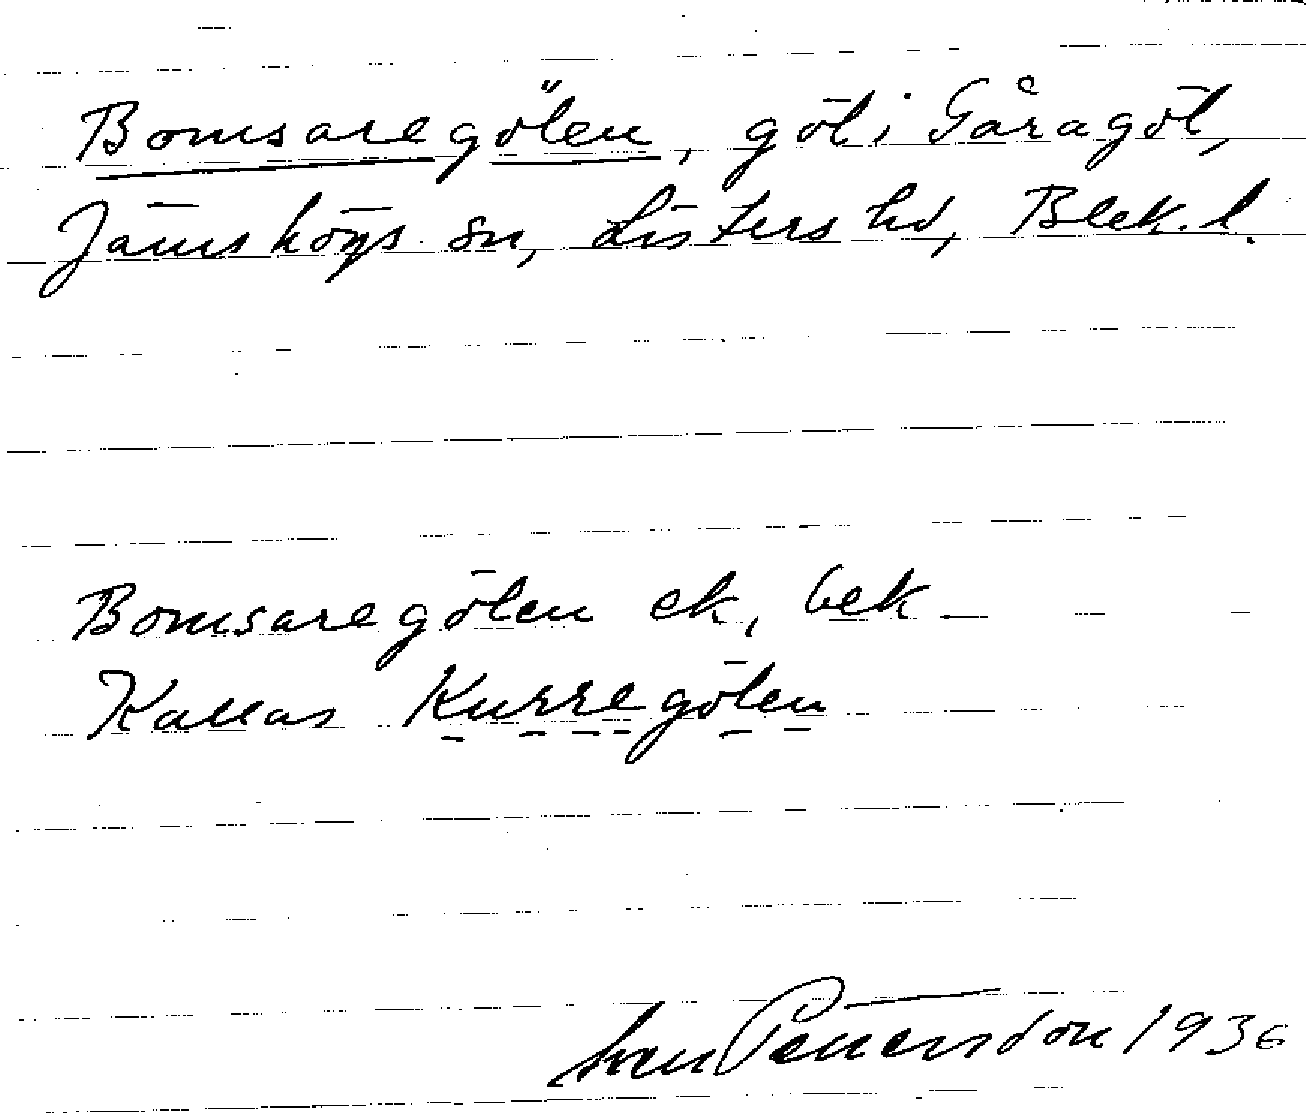 Bomsaregölen, göl i Gåragöl,
Jämshögs sn, Listers hd, Blek. l.
Bomsaregölen ek, bek
Kallas Kurregölen
Sven Pettersson 1936